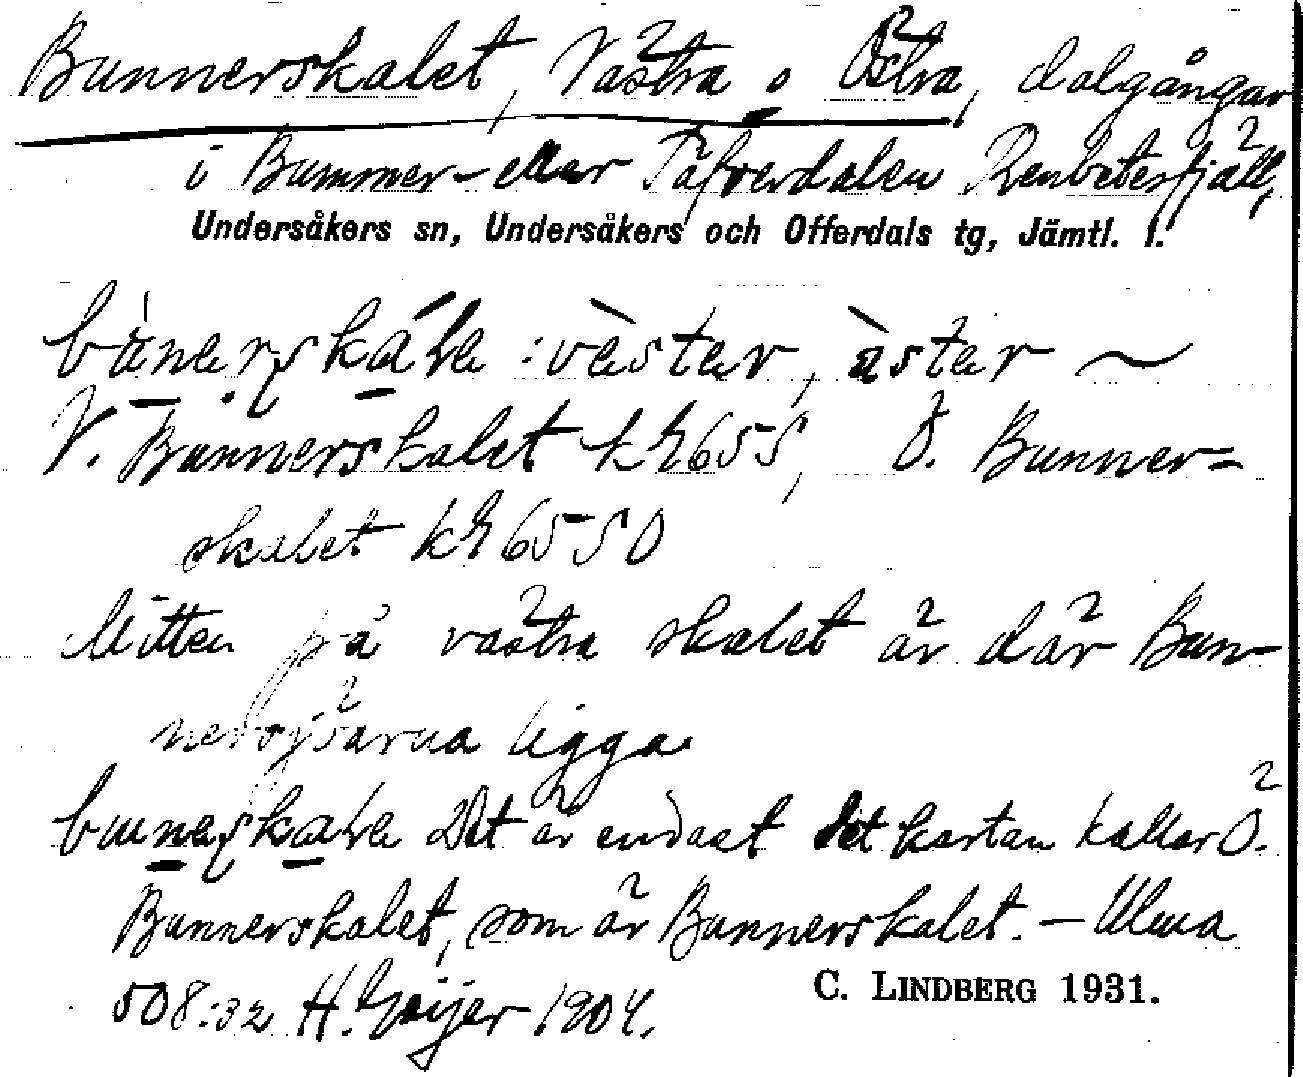 Bunnerskalet, Västra o Östra, dalgångar
i Bummer- eller Täfverdalen Renbetesfjäll,
Undersåkers sn, Undersåkers och Offerdals tg, Jämtl. l.
V. Bunnerskalet kh 655, Ö. Bunner-
skalet kh 655 O
Mitten på västra skalet är där Bun-
nersjöarna ligga
Det är endast det kartan kallar Ö.
Bunnerskalet, som är Bunnerskalet. – Ulma
508:32 H. Geijer 1904.
C. LINDBERG 1931.